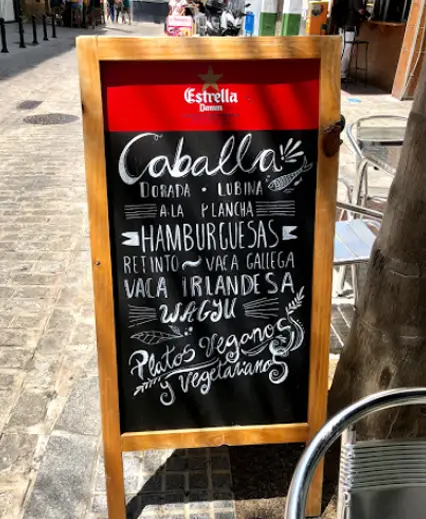 Estrella
Damm
Caballa
DORADA • LUBINA
A LA PLANCHA
HAMBURGUESAS
RETINTO ~ VACA GALLEGA
VACA IRLANDESA
WAGYU
Platos Veganos
y Vegetarianos